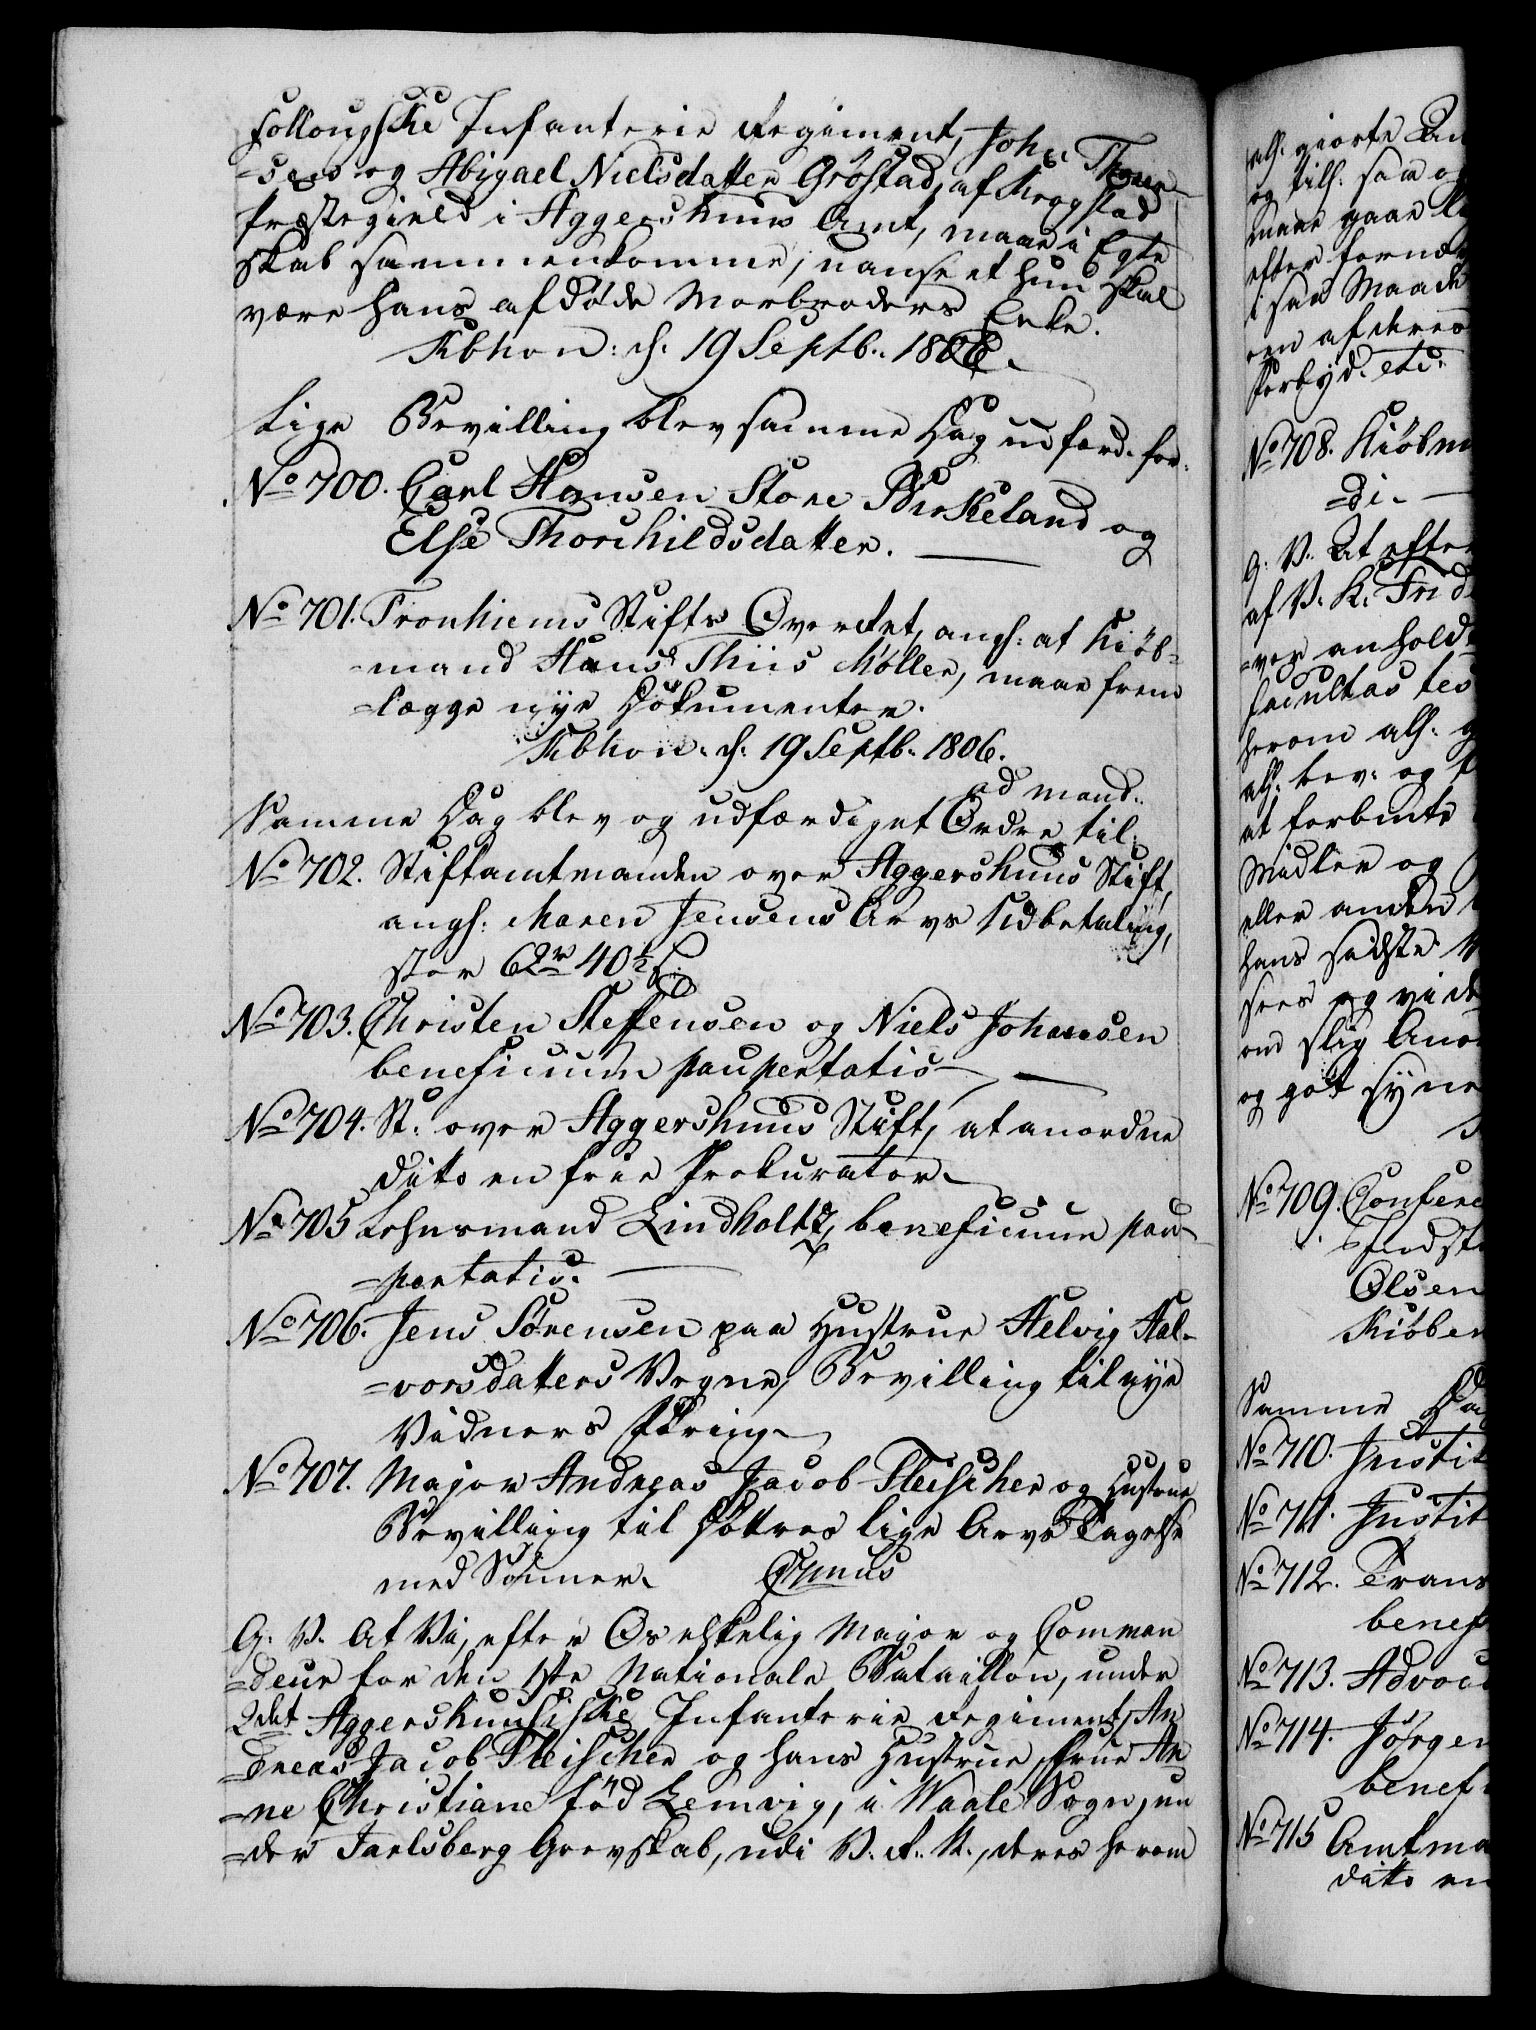 Follougske Infanterie Regiment, John Thoren
=sen og Abigael Nielsdatter Grøstad, af Krogstad
Præstegield i Aggershuus Amt, maae i Egte
skab sammenkomme, uanseet hun skal
være hans afdøde Morbroders Enke.
Kbhvn: d: 19 Septb. 1806.
Lige Bevilling blev samme Dag udfærd. for.
No 700. Carl Hansen Store Birkeland og
Else Thorchildsdatter.
No 701. Tronhiems Stifts Overret, angs: at Kiøb=
=mand Hans Thiis Møller, maae frem
=lægge nye Dokumenter.
Kbhvn. d: 19 Septb. 1806.
ad mand.
Samme Dag blev og udfærdiget Ordre til.
No 702. Stiftamtmanden over Aggershuus Stift,
angs: Maren Jensens Arvs Udbetaling,
stor 62 rd 40½ s.
No 703. Christen Steffensen og Niels Johansen
beneficium paupertatis
No 704. St. over Aggershuus Stift, at anordne
ditto en frie Prokurator
No 705 Lehnsmand Lindholtz, beneficium pau
=pertatis.
No 706. Jens Sørensen paa Hustrue Helvig Hal-
=vorsdatters Vegne, Bevilling til nye
Vidners Føring
No 707. Major Andreas Jacob Fleischer og Hustrue
Bevilling til Døttres lige Arvs Tagelse
med Sønner.
G. V. At Vi, efter Os elskelig Major og Comman
=deur for den 1ste Nationale Bataillon, under
2det Aggershuusiske Infanterie Regiment, An
=dreas Jacob Fleischer og hans Hustrue, Frue An
=ne Christiane fød Lemvig, i Waale Sogn, un
=der Jarlsberg Grevskab, udi V. R. N., deres herom
als. giorte An
og tils. sam o
maae gaae
efter forne
i saa Maade
en af deres
Forbyd. etc.
No 708. Kiøbm
=di.
G. V. At efter
af V. K. Frid
=ver anhold
facultas tes
herom als. g
als. bev: og
at forbmte
Midler og
eller anden
hans sidste
sees og vide
om slig Ano
og got syne
No 709. Confere
=Indst
Olsen
Kiøben
Samme Da
No 710. Justit
No 711. Justit
No 712. Trans
benef
No 713. Advoca
No 714. Jörgen
benef
No 715 Amtma
ditto en